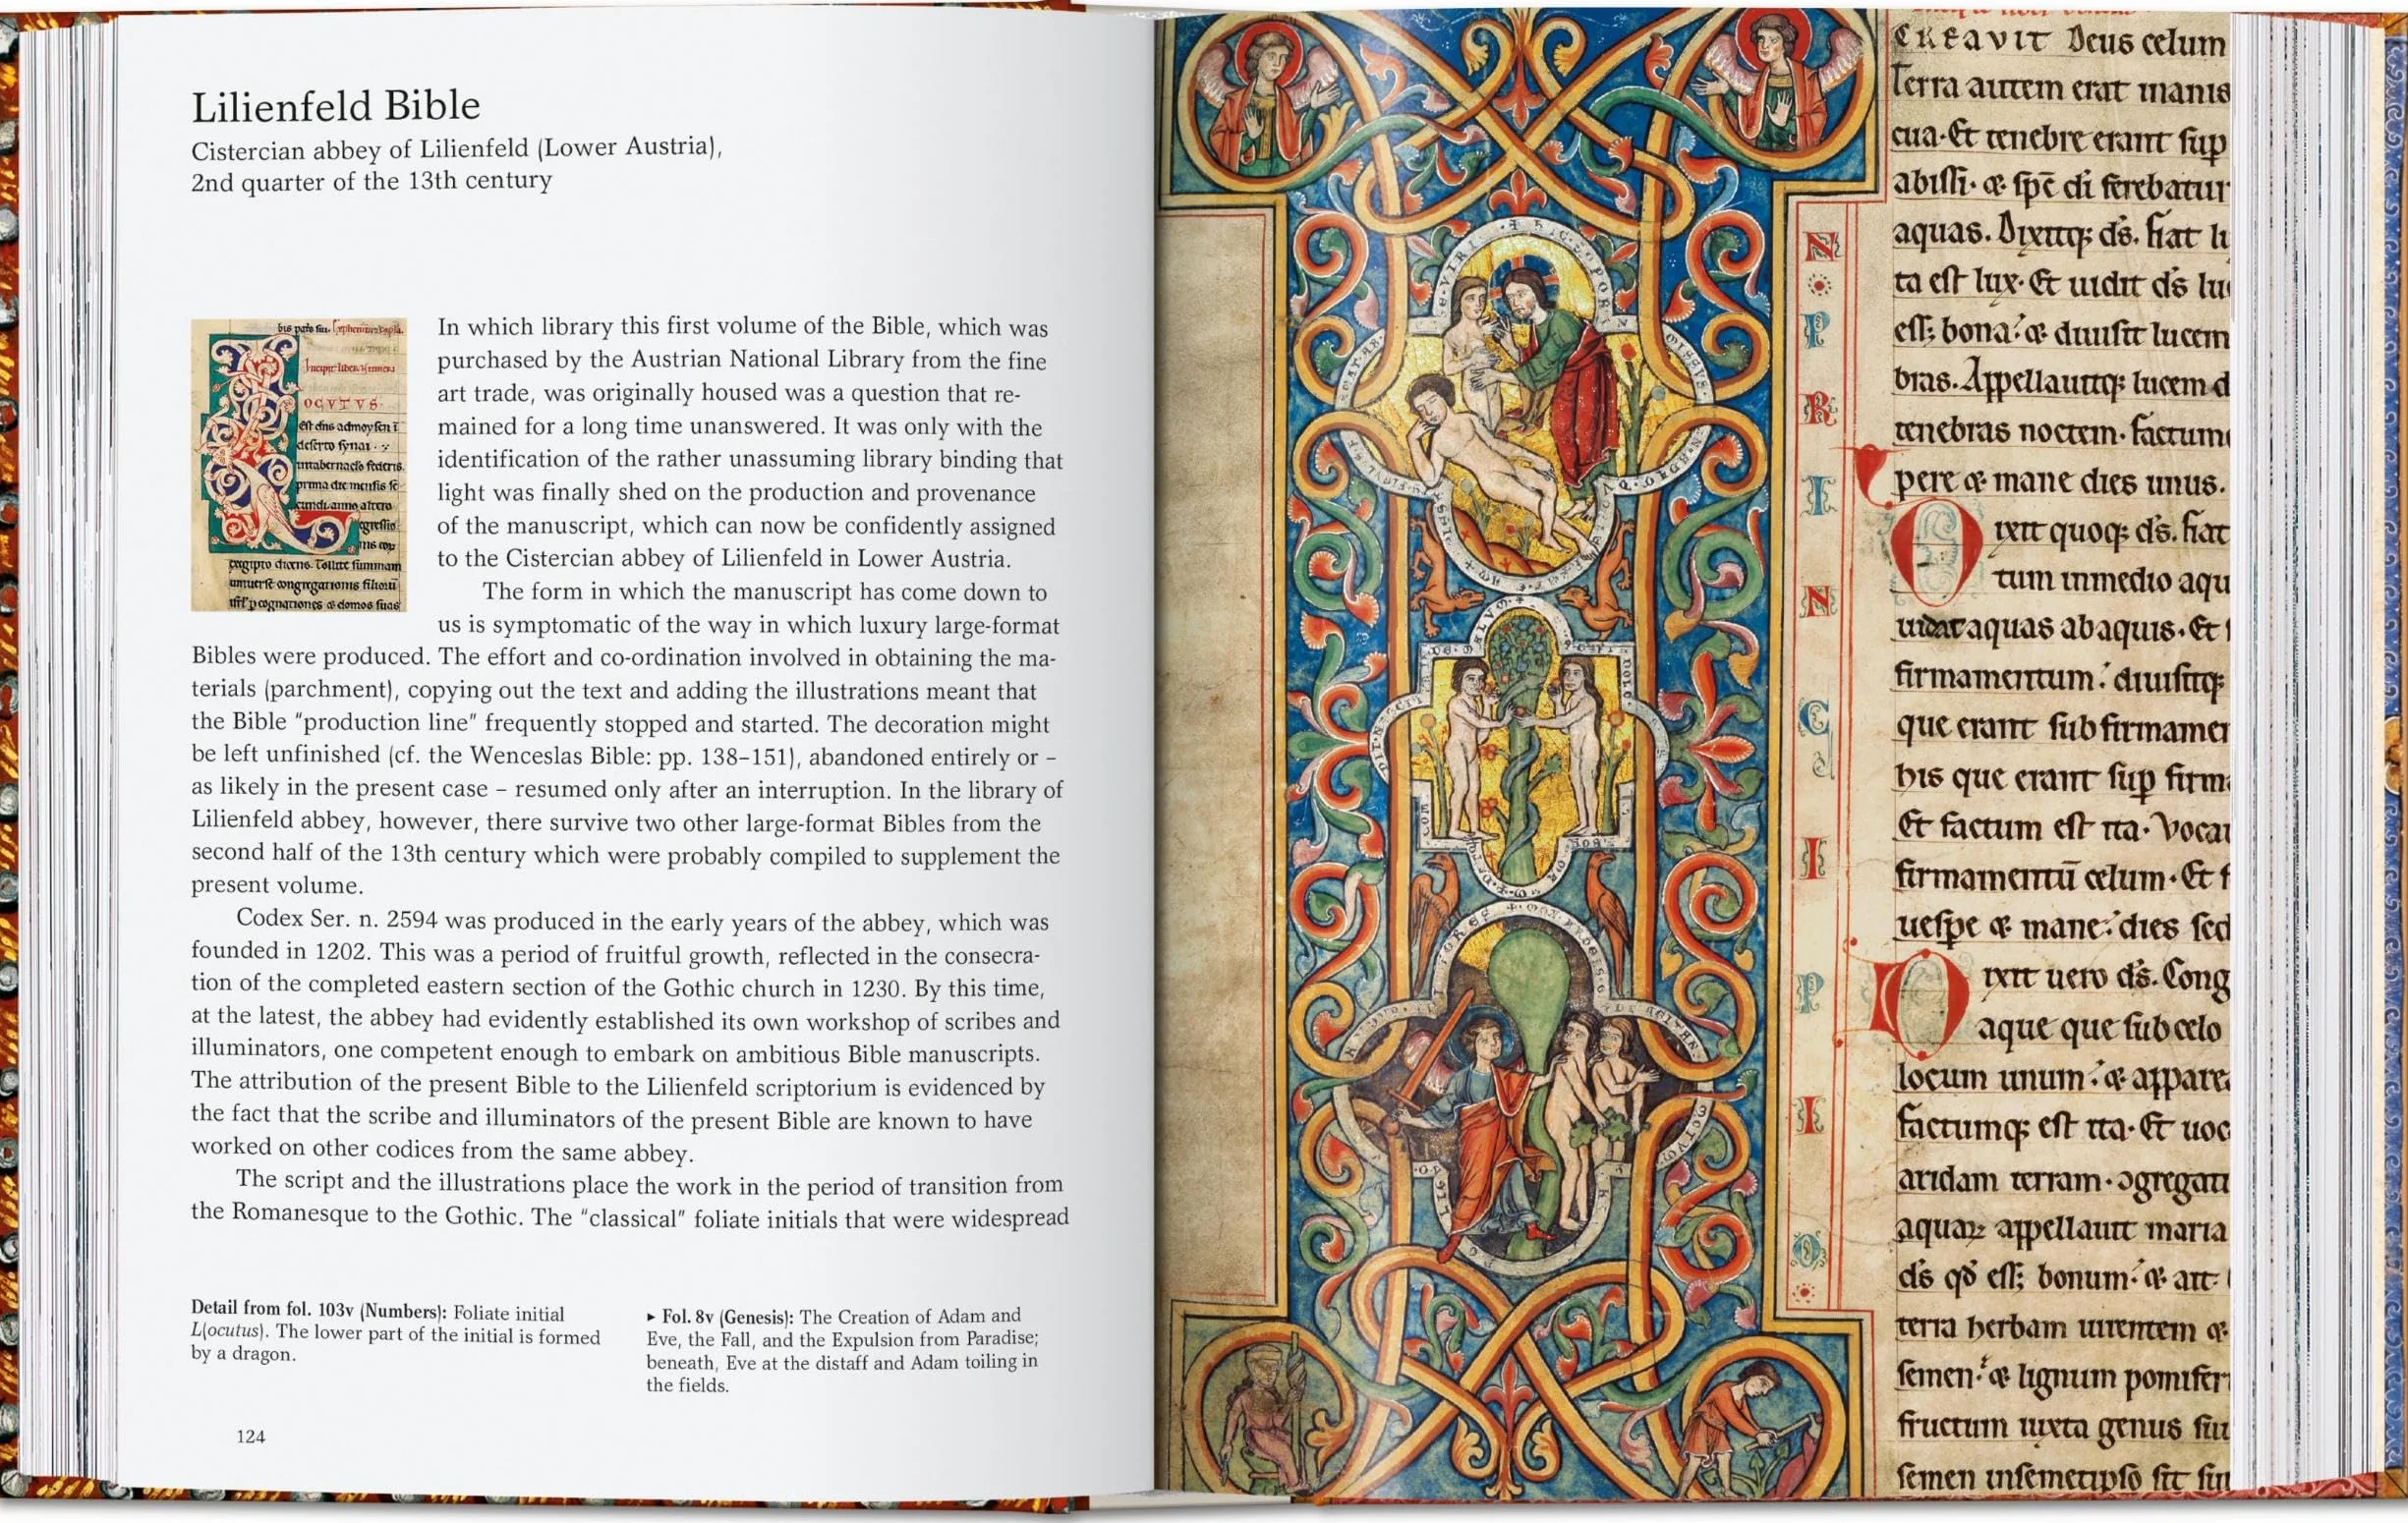 Lilienfeld Bible
Cistercian abbey of Lilienfeld (Lower Austria),
2nd quarter of the 13th century
OCVTVS
est dns admoysen i
deserto synai
prima die mensis se
cundi anno altero
egressio
egipto dicens. Tollite summam
uniuerse congregationis filioru
cognationes & domos suas
In which library this first volume of the Bible, which was
purchased by the Austrian National Library from the fine
art trade, was originally housed was a question that re-
mained for a long time unanswered. It was only with the
identification of the rather unassuming library binding that
light was finally shed on the production and provenance
of the manuscript, which can now be confidently assigned
to the Cistercian abbey of Lilienfeld in Lower Austria.
The form in which the manuscript has come down to
us is symptomatic of the way in which luxury large-format
Bibles were produced. The effort and co-ordination involved in obtaining the ma-
terials (parchment), copying out the text and adding the illustrations meant that
the Bible “production line” frequently stopped and started. The decoration might
be left unfinished (cf. the Wenceslas Bible: pp. 138–151), abandoned entirely or –
as likely in the present case – resumed only after an interruption. In the library of
Lilienfeld abbey, however, there survive two other large-format Bibles from the
second half of the 13th century which were probably compiled to supplement the
present volume.
Codex Ser. n. 2594 was produced in the early years of the abbey, which was
founded in 1202. This was a period of fruitful growth, reflected in the consecra-
tion of the completed eastern section of the Gothic church in 1230. By this time,
at the latest, the abbey had evidently established its own workshop of scribes and
illuminators, one competent enough to embark on ambitious Bible manuscripts.
The attribution of the present Bible to the Lilienfeld scriptorium is evidenced by
the fact that the scribe and illuminators of the present Bible are known to have
worked on other codices from the same abbey.
The script and the illustrations place the work in the period of transition from
the Romanesque to the Gothic. The “classical” foliate initials that were widespread
Detail from fol. 103v (Numbers): Foliate initial
L(ocutus). The lower part of the initial is formed
by a dragon.
▸ Fol. 8v (Genesis): The Creation of Adam and
Eve, the Fall, and the Expulsion from Paradise;
beneath, Eve at the distaff and Adam toiling in
the fields.
124
N
P
R
I
N
C
I
P
I
O
CREAVIT Deus celum
Terra autem erat inanis
cua. Et tenebre erant sup
abissi. & spc di ferebatur
aquas. Dixitq; ds. fiat lu
ta est lux. Et uidit ds lu
ess; bona. & diuisit lucem
bras. Appellauitq; lucem d
tenebras noctem. factum
pere & mane dies unus.
Dixit quoq; ds. fiat
tum inmedio aqu
uidat aquas ab aquis. Et
firmamentum. diuisitq;
que erant sub firmamen
his que erant sup firma
Et factum est ita. Voca
firmamentu celum. Et f
uespe & mane. dies sed
Dixit uero ds. Cong
aque que sub celo
locum unum. & appare
factumq; est ita. Et uoc
aridam terram. ɔgregati
aquaꝝ appellauit maria
ds qd ess; bonum. & ait
terra herbam uirentem &
semen. & lignum pomifer
fructum iuxta genus su
semen insemetipso sit su